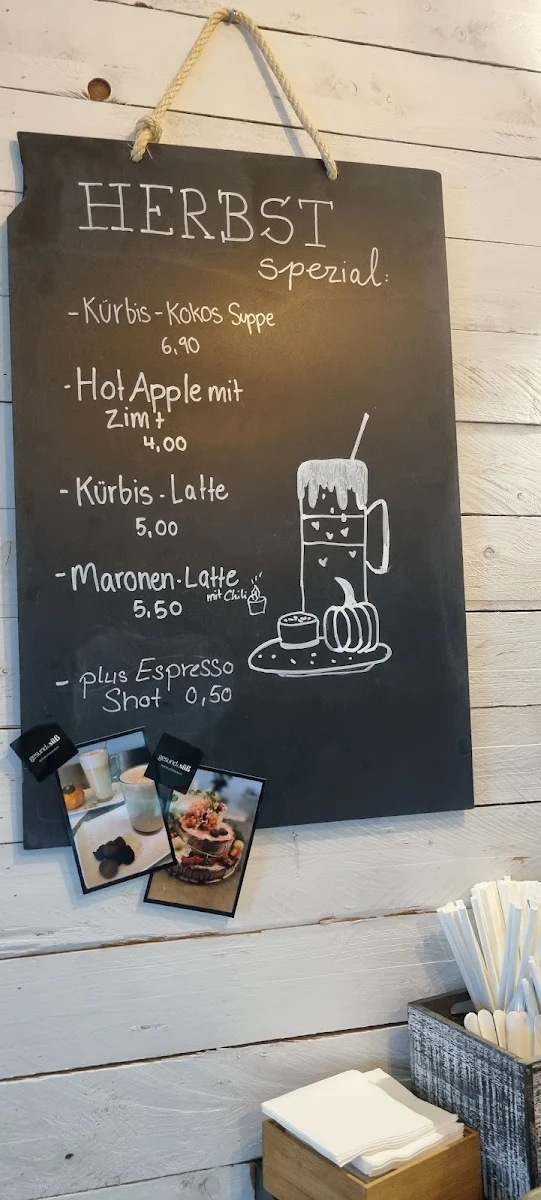 HERBST
spezial:
-Kürbis-Kokos Suppe
6,90
-Hot Apple mit
Zimt
4,00
-Kürbis-Latte
5,00
-Maronen-Latte
mit Chili
5,50
- plus Espresso
Shot 0,50
gesund&süß
gesund&süß